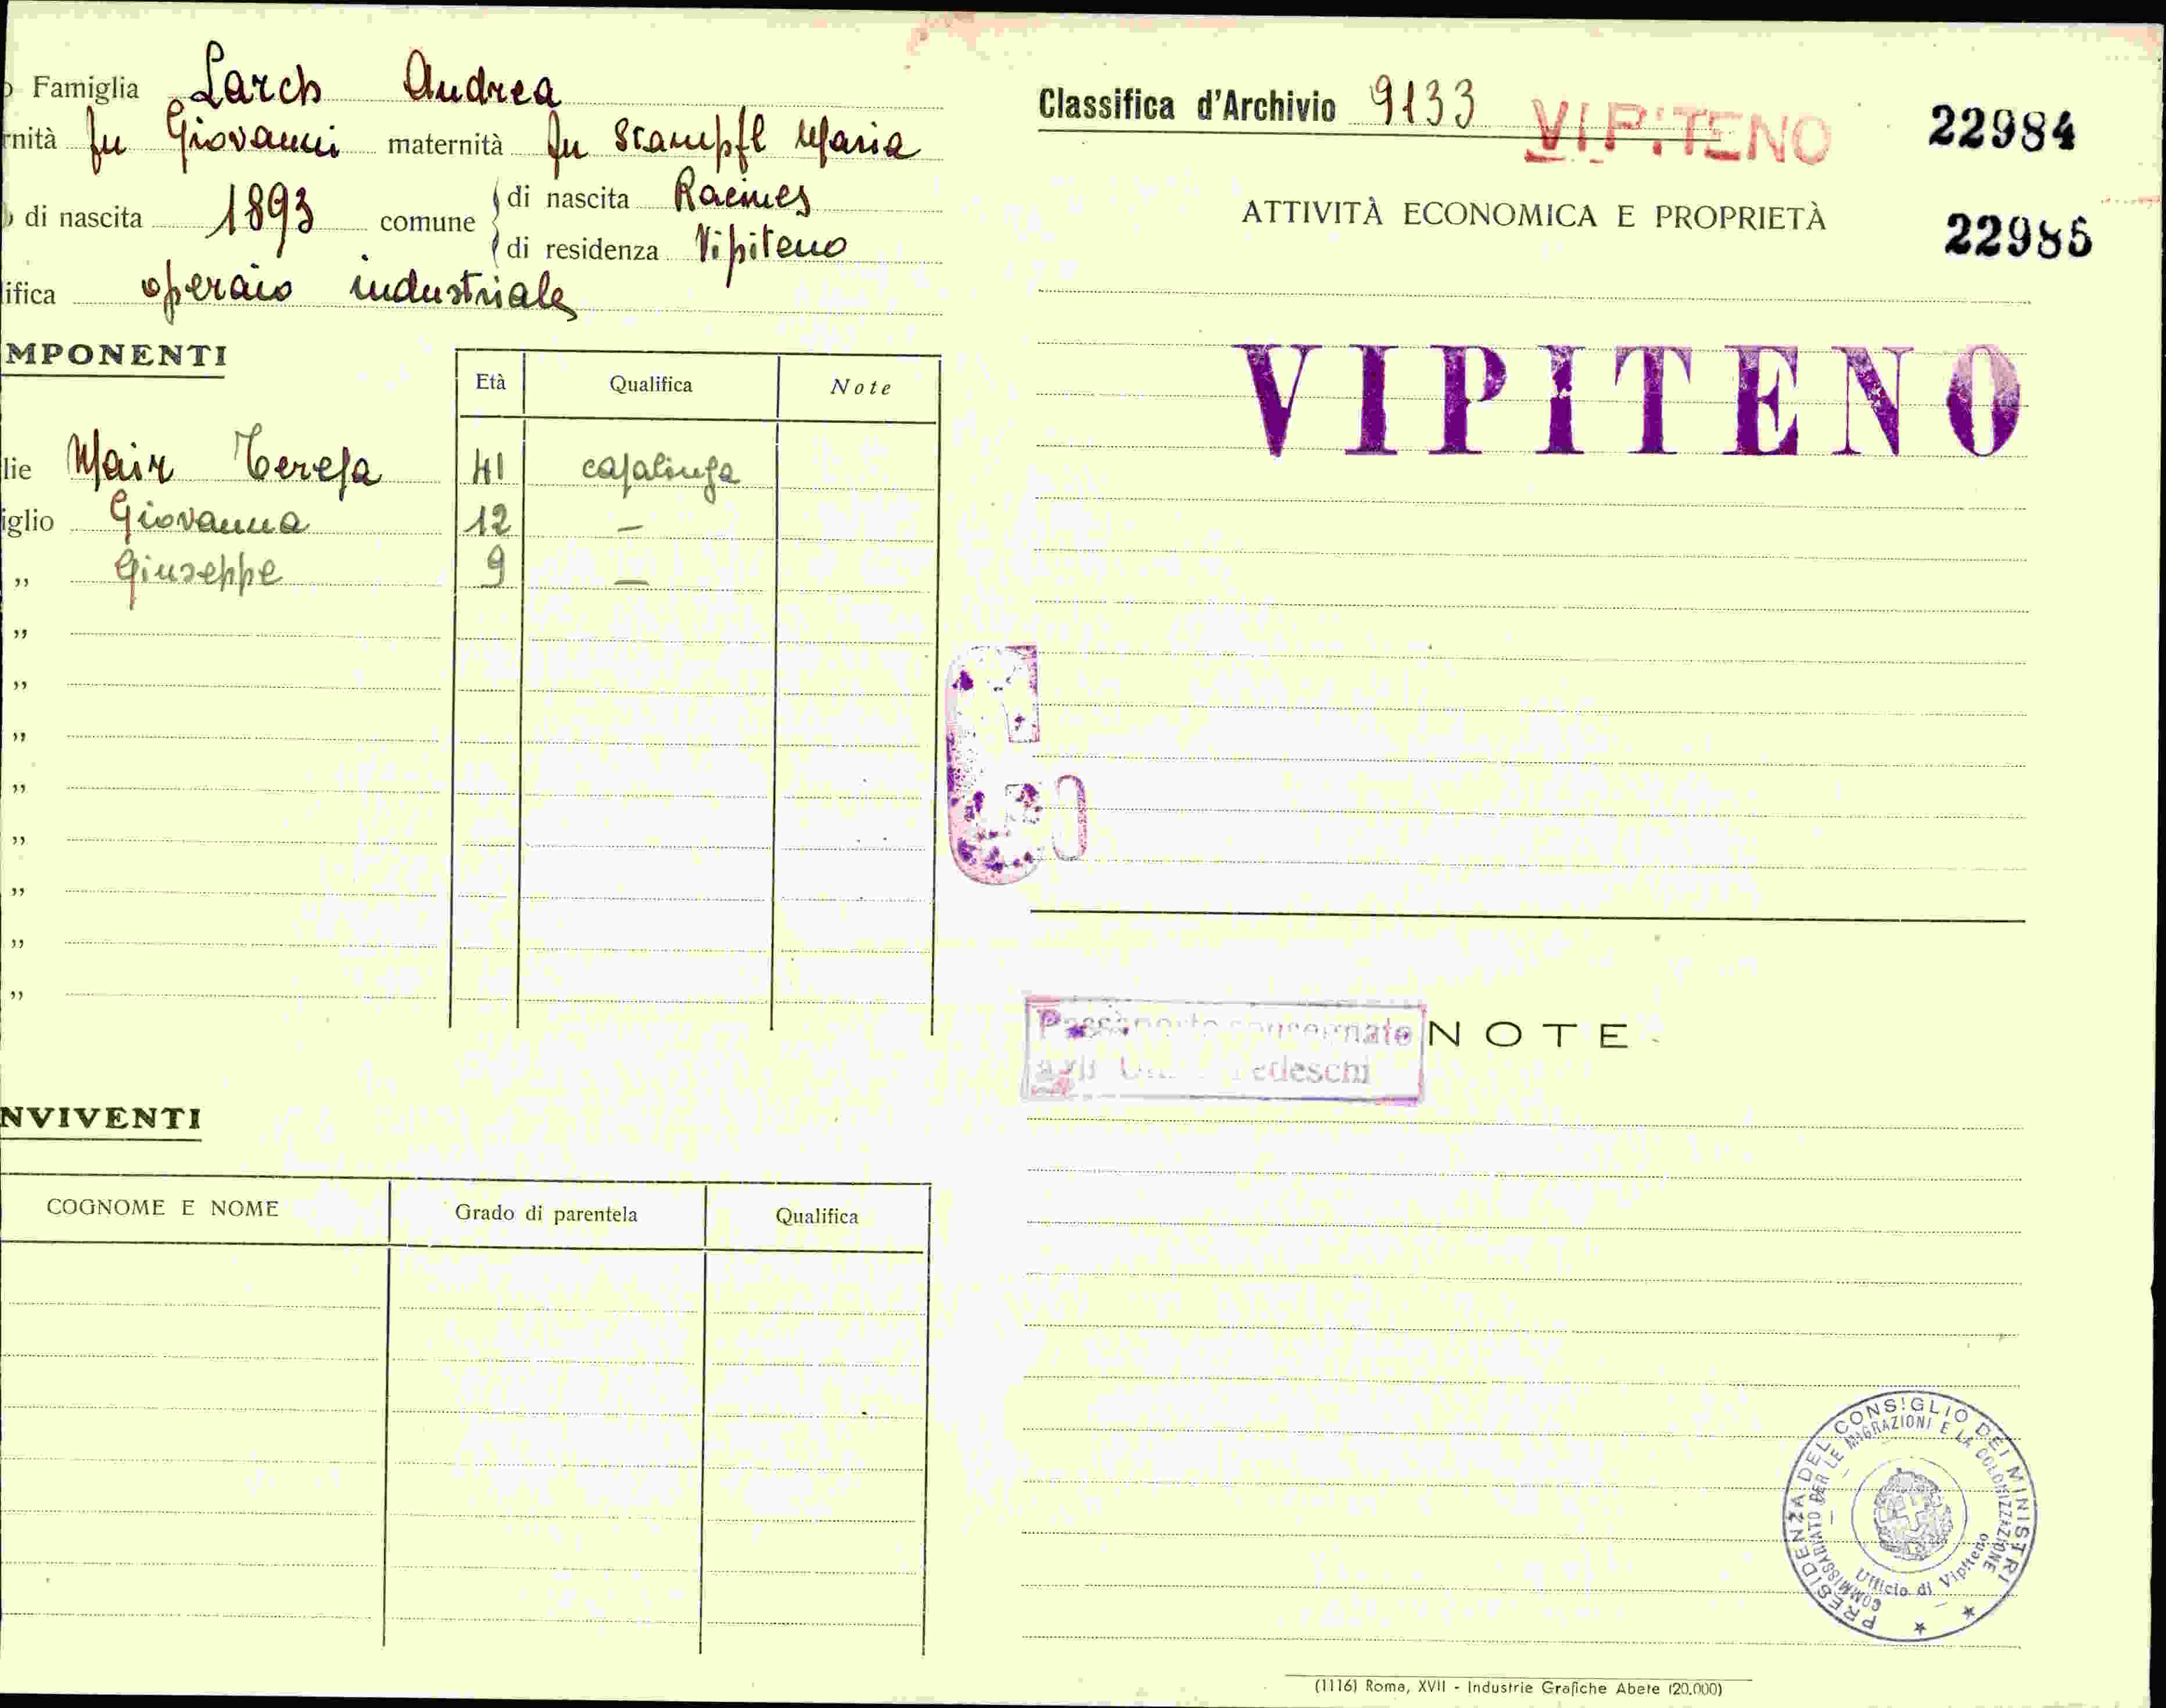 Famiglia Larch Andrea
rnità fu Giovanni maternità fu Stampfl Maria
di nascita 1893 comune di nascita Racines
di residenza Vipiteno
ifica operaio industriale
MPONENTI
Età Qualifica Note
lie Mair Teresa 41 casalinga
iglio Giovanna 12 –
„ Giuseppe 9 –
„
„
„
„
„
„
„
„
NVIVENTI
COGNOME E NOME Grado di parentela Qualifica
Classifica d'Archivio 9133 VIPITENO 22984
ATTIVITÀ ECONOMICA E PROPRIETÀ 22985
VIPITENO
Passaporto consegnato
agli Tedeschi
NOTE
PRESIDENZA DEL CONSIGLIO DEI MINISTRI
COMMISSARIATO PER LE MIGRAZIONI E LA COLONIZZAZIONE
Ufficio di Vipiteno
(1116) Roma, XVII - Industrie Grafiche Abete (20.000)